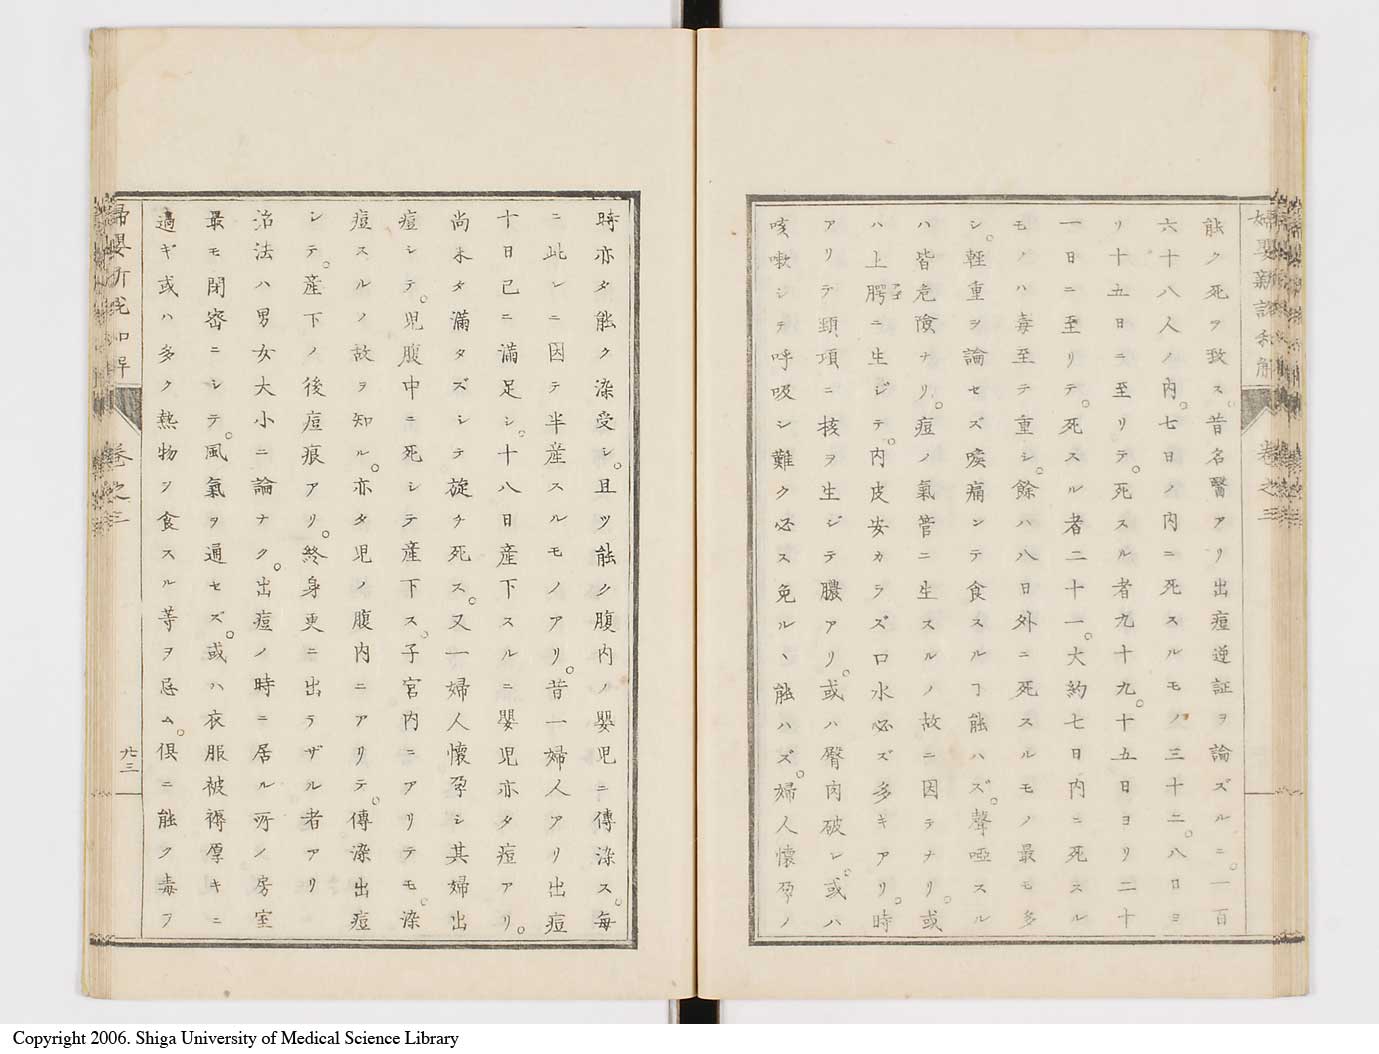 能ク死ヲ致ス。昔名醫アリ出痘逆証ヲ論ズルニ。一百
六十八人ノ内。七日ノ内ニ死スルモノ三十二。八日ヨ
リ十五日ニ至リテ。死スル者九十九。十五日ヨリ二十
一日ニ至リテ。死スル者二十一。大約七日内ニ死スル
モノハ毒至テ重シ。餘ハ八日外ニ死スルモノ最モ多
シ。輕重ヲ論セズ喉痛シテ食スルヿ能ハズ。聲啞スル
ハ皆危險ナリ。痘ノ氣管ニ生スルノ故ニ因テナリ。或
ハ上腭ニ生ジテ。内皮安カラズ口水必ズ多キアリ。時
アリテ頸項ニ核ヲ生ジテ膿アリ。或ハ臀肉破レ。或ハ
咳嗽シテ呼吸シ難ク必ス免ルヽ能ハズ。婦人懷孕ノ
婦嬰新說和解
卷之三
時亦タ能ク染受シ。且ツ能ク腹内ノ嬰児ニ傳染ス。毎
ニ此レニ因テ半産スルモノアリ。昔一婦人アリ出痘
十日已ニ滿足シ。十八日産下スルニ嬰児亦タ痘アリ。
尚未タ滿タズシテ旋チ死ス。又一婦人懷孕シ其婦出
痘シテ。児腹中ニ死シテ産下ス。子宮内ニアリテモ。染
痘スルノ故ヲ知ル。亦タ児ノ腹内ニアリテ。傳染出痘
シテ。産下ノ後痘痕アリ。終身更ニ出ラザル者アリ
治法ハ男女大小ニ論ナク。出痘ノ時ニ居ル所ノ房室
最モ閉密ニシテ。風氣ヲ通セズ。或ハ衣服被褥厚キニ
過ギ或ハ多ク熱物ヲ食スル等ヲ忌ム。俱ニ能ク毒ヲ
卷之三
廿三
Copyright 2006. Shiga University of Medical Science Library